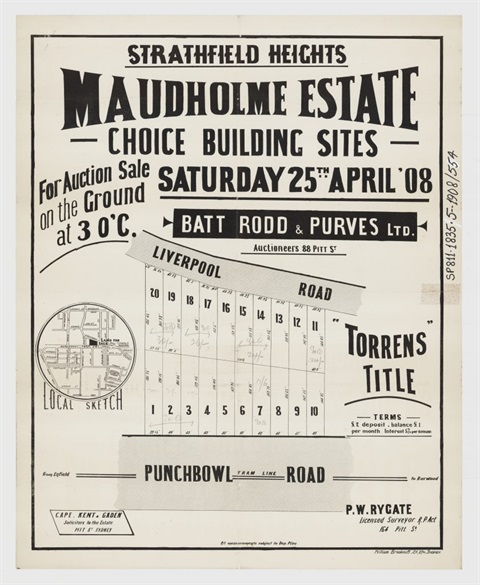 STRATHFIELD HEIGHTS
MAUDHOLME ESTATE
CHOICE BUILDING SITES
For Auction Sale
on the Ground
at 3 O'C.
SATURDAY 25TH APRIL '08
BATT RODD & PURVES LTD.
Auctioneers 88 PITT ST
LIVERPOOL ROAD
20 19 18 17 16 15 14 13 12 11
1 2 3 4 5 6 7 8 9 10
LOCAL SKETCH
"TORRENS"
TITLE
TERMS
£1 deposit, balance £1
per month. Interest
PUNCHBOWL TRAM LINE ROAD
From Enfield
to Burwood
CAPE, KENT & GADEN
Solicitors to the Estate
PITT ST SYDNEY
P.W. RYGATE
Licensed Surveyor R.P. Act
164 Pitt St
SP811.1835.5-1908/554